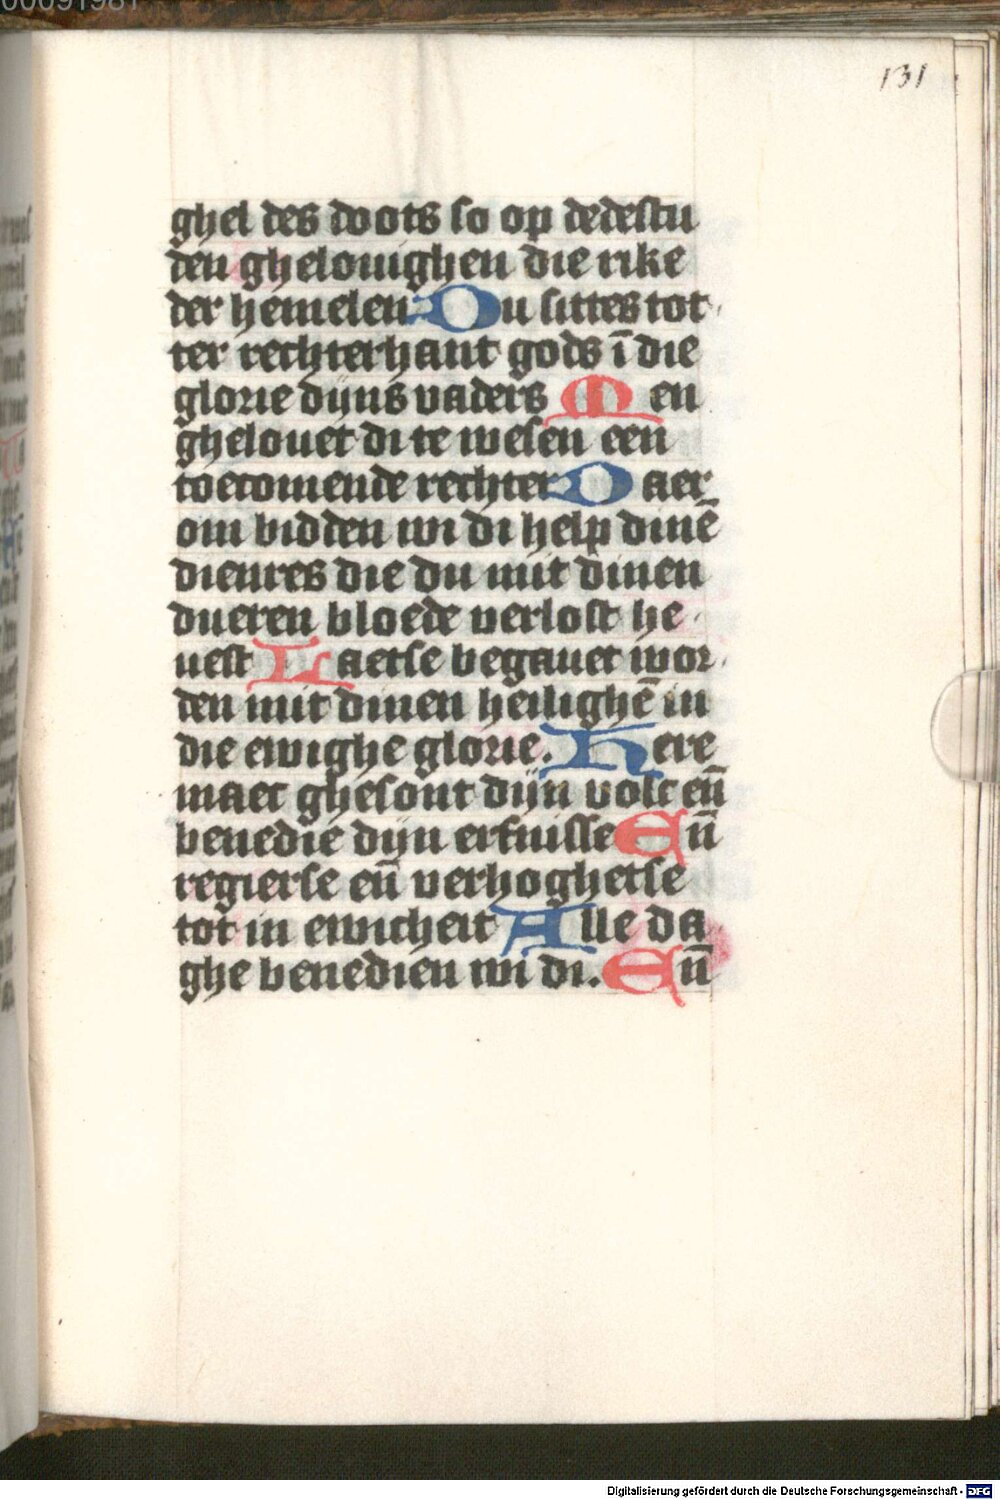 131
ghel des doots so op dedestu
den ghelouighen die rike
der hemelen Du sittes tot
ter rechterhant gods ī die
glorie dijns vaders Men
ghelouet di te wesen een
toecomende rechter Daer
om bidden wi di help dinē
dienres die du mit dinen
dueren bloede verlost he
uest Laetse begauet wor
den mit dinen heilighē in
die ewighe glorie. Here
maec ghesont dijn volc eñ
benedie dijn erfnisse Eñ
regierse eñ verhoghetse
tot in ewicheit Alle da
ghe benedien wi di. Eñ
Digitalisierung gefördert durch die Deutsche Forschungsgemeinschaft - DFG